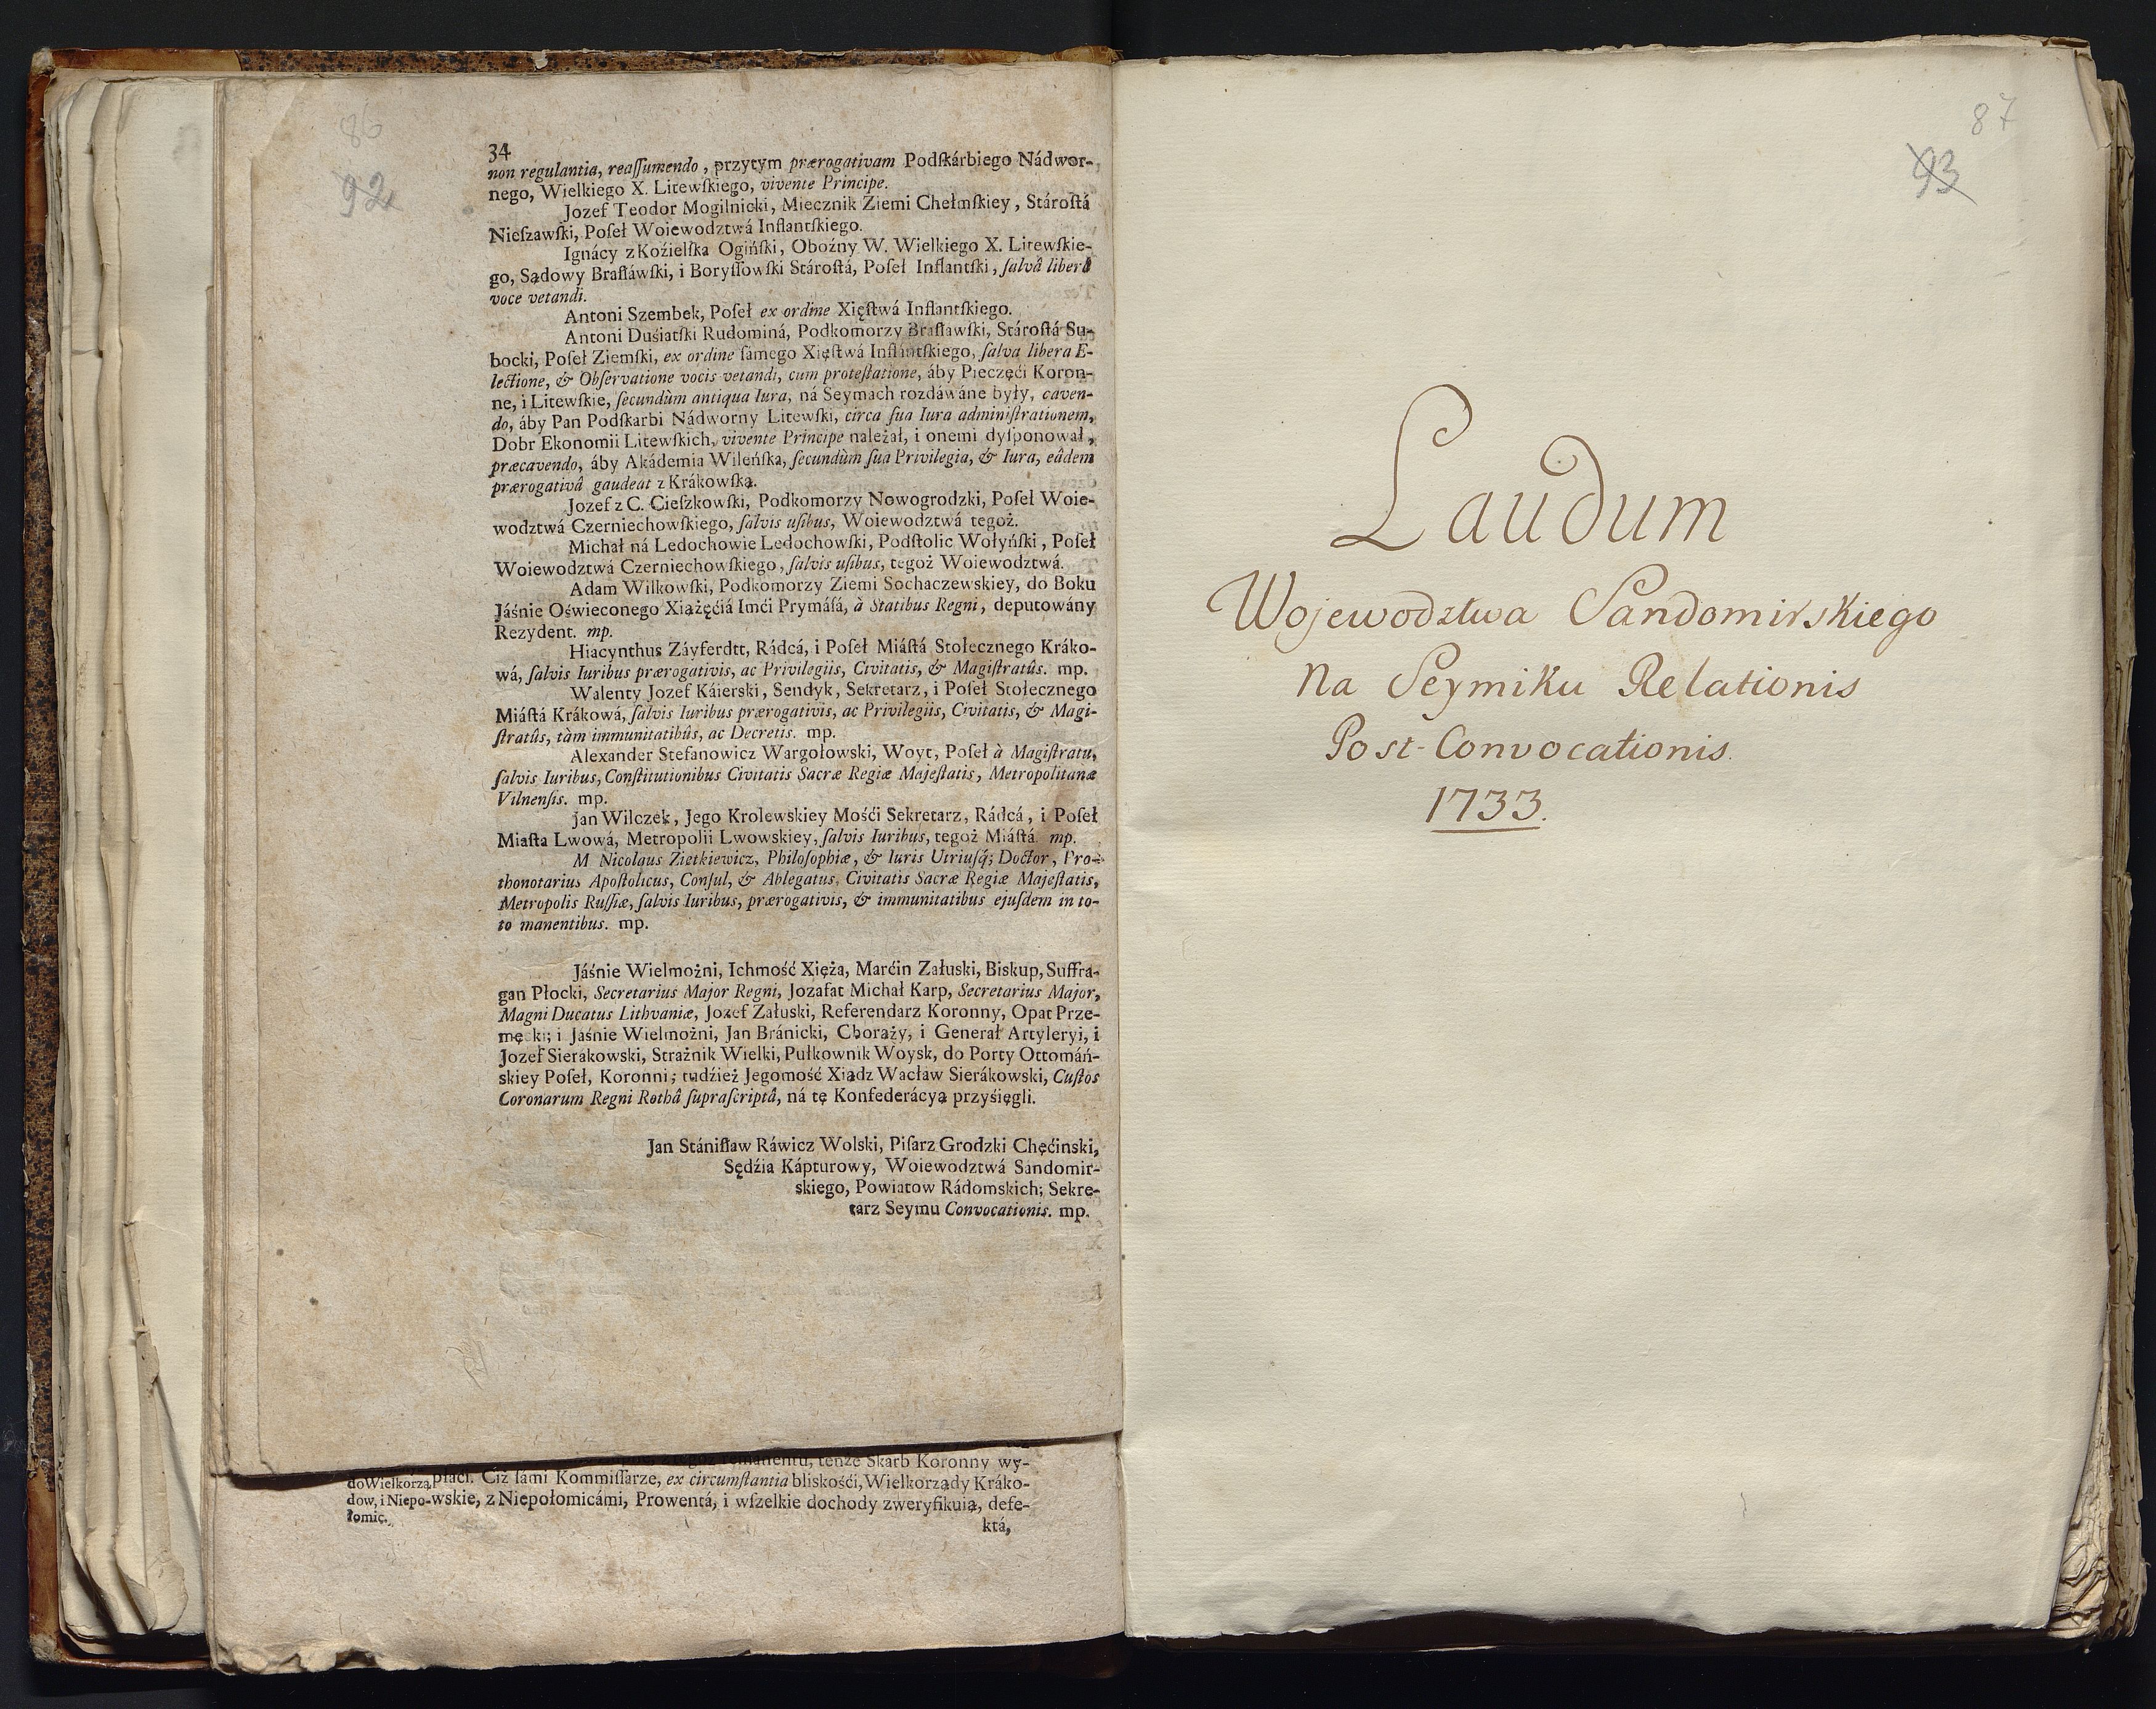 86
92
34
non regulantia, reaſſumendo, przytym prærogativam Podſkárbiego Nádwor-
nego, Wielkiego X. Litewſkiego, vivente Principe.
Jozef Teodor Mogilnicki, Miecznik Ziemi Chełmſkiey, Stároſtá
Nieſzawſki, Poſeł Woiewodztwá Inflantſkiego.
Ignácy z Koźielſka Ogińſki, Oboźny W. Wielkiego X. Litewſkie-
go, Sądowy Braſláwſki, i Boryſſowſki Stároſtá, Poſeł Inflantſki, ſalvâ liberâ
voce vetandi.
Antoni Szembek, Poſeł ex ordine Xięſtwá Inflantſkiego.
Antoni Duśiatſki Rudominá, Podkomorzy Braſławſki, Stároſtá Su-
bocki, Poſeł Ziemſki, ex ordine ſámego Xięſtwá Inflántſkiego, ſalva libera E-
lectione, & Obſervatione vocis vetandi, cum proteſtatione, áby Pieczęći Koron-
ne, i Litewſkie, ſecundùm antiqua Iura, ná Seymach rozdáwáne były, caven-
do, áby Pan Podſkarbi Nádworny Litewſki, circa ſua Iura adminiſtrationem,
Dobr Ekonomii Litewſkich, vivente Principe należał, i onemi dyſponował,
præcavendo, áby Akádemia Wileńſka, ſecundùm ſua Privilegia, & Iura, eâdem
prærogativâ gaudeat z Krákowſką.
Jozef z C. Cieſzkowſki, Podkomorzy Nowogrodzki, Poſeł Woie-
wodztwá Czerniechowſkiego, ſalvis uſibus, Woiewodztwá tegoż.
Michał ná Ledochowie Ledochowſki, Podſtolic Wołyńſki, Poſeł
Woiewodztwá Czerniechowſkiego, ſalvis uſibus, tegoż Woiewodztwá.
Adam Wilkowſki, Podkomorzy Ziemi Sochaczewskiey, do Boku
Jáśnie Oświeconego Xiążęćiá Imći Prymáſá, à Statibus Regni, deputowány
Rezydent. mp.
Hiacynthus Záyferdtt, Rádcá, i Poſeł Miáſtá Stołecznego Kráko-
wá, ſalvis Iuribus prærogativis, ac Privilegiis, Civitatis, & Magiſtratûs. mp.
Walenty Jozef Káierski, Sendyk, Sekretarz, i Poſeł Stołecznego
Miáſtá Krákowá, ſalvis Iuribus prærogativis, ac Privilegiis, Civitatis, & Magi-
ſtratûs, tàm immunitatibûs, ac Decretis. mp.
Alexander Stefanowicz Wargołowski, Woyt, Poſeł à Magiſtratu,
ſalvis Iuribus, Conſtitutionibus Civitatis Sacræ Regiæ Majeſtatis, Metropolitanæ
Vilnenſis. mp.
Jan Wilczek, Jego Krolewskiey Mośći Sekretarz, Rádcá, i Poſeł
Miaſta Lwowá, Metropolii Lwowskiey, ſalvis Iuribus, tegoż Miáſtá. mp.
M Nicolaus Zietkiewicz, Philoſophiæ, & Iuris Utriuſq́; Doctor, Pro-
thonotarius Apoſtolicus, Conſul, & Ablegatus, Civitatis Sacræ Regiæ Majeſtatis,
Metropolis Ruſſiæ, ſalvis Iuribus, prærogativis, & immunitatibus ejuſdem in to-
to manentibus. mp.
Jáśnie Wielmożni, Ichmość Xięża, Marćin Załuski, Biskup, Suffra-
gan Płocki, Secretarius Major Regni, Jozafat Michał Karp, Secretarius Major,
Magni Ducatus Lithvaniæ, Jozef Załuski, Referendarz Koronny, Opat Prze-
męcki; i Jáśnie Wielmożni, Jan Bránicki, Chorąży, i Generał Artyleryi, i
Jozef Sierákowski, Strażnik Wielki, Pułkownik Woysk, do Porty Ottomáń-
skiey Poſeł, Koronni; tudźież Jegomość Xiądz Wacław Sierákowski, Cuſtos
Coronarum Regni Rothâ ſupraſcriptâ, ná tę Konfederácyą przyśięgli.
Jan Stániſław Ráwicz Wolski, Piſarz Grodzki Chęćinski,
Sędźia Kápturowy, Woiewodztwá Sandomir-
skiego, Powiatow Rádomskich; Sekre-
tarz Seymu Convocationis. mp.
tenże Skarb Koronny wy-
do Wielkorzą płáci. Ciż ſami Kommiſſarze, ex circumſtantia bliskośći, Wielkorządy Kráko-
dow, i Niepo- wskie, z Niepołomicámi, Prowentá, i wſzelkie dochody zweryfikuią, defe-
łomic.
ktá,
87
93
Laudum
Wojewodztwa Sandomirskiego
Na Seymiku Relationis
Post-Convocationis.
1733.